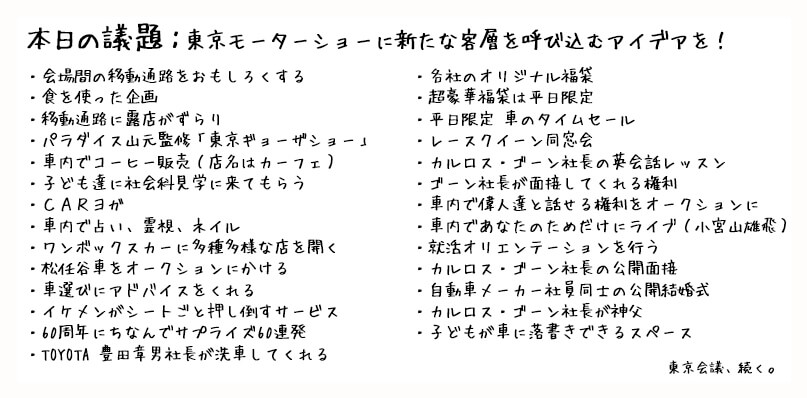 本日の議題;東京モーターショーに新たな客層を呼び込むアイデアを!
・会場間の移動通路をおもしろくする
・食を使った企画
・移動通路に露店がずらり
・パラダイス山元監修「東京ギョーザショー」
・車内でコーヒー販売(店名はカーフェ)
・子ども達に社会科見学に来てもらう
・CARヨガ
・車内で占い、霊視、ネイル
・ワンボックスカーに多種多様な店を開く
・松任谷車をオークションにかける
・車選びにアドバイスをくれる
・イケメンがシートごと押し倒すサービス
・60周年にちなんでサプライズ60連発
・TOYOTA 豊田章男社長が洗車してくれる
・各社のオリジナル福袋
・超豪華福袋は平日限定
・平日限定 車のタイムセール
・レースクイーン同窓会
・カルロス・ゴーン社長の英会話レッスン
・ゴーン社長が面接してくれる権利
・車内で偉人達と話せる権利をオークションに
・車内であなたのためだけにライブ(小宮山雄飛)
・就活オリエンテーションを行う
・カルロス・ゴーン社長の公開面接
・自動車メーカー社員同士の公開結婚式
・カルロス・ゴーン社長が神父
・子どもが車に落書きできるスペース
東京会議、続く。